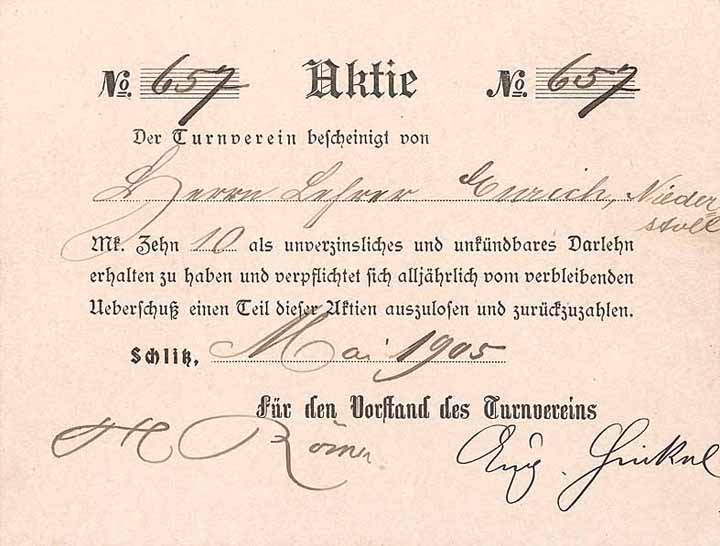 No. 657 Aktie No. 657
Der Turnverein bescheinigt von
Herrn Lehrer Emrich, Nieder
stoll
Mk. Zehn 10 als unverzinsliches und unkündbares Darlehn
erhalten zu haben und verpflichtet sich alljährlich vom verbleibenden
Ueberschuß einen Teil dieser Aktien auszulosen und zurückzuzahlen.
Schlitz, Mai 1905
Für den Vorstand des Turnvereins
H Römer Aug. Hinkel